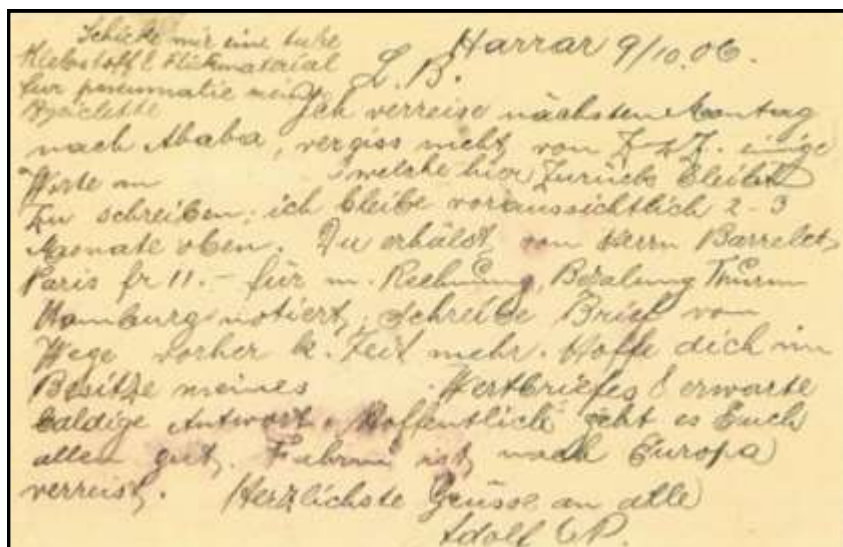 Schicke mir eine tube
Klebstoff & Flickmaterial
für pneumatic meine
Byciclette
Harrar 9/10.06.
L. B.
Ich verreise nächsten Montag
nach Ababa, vergiss nicht von Z. z. Z. einige
Worte an welche hier zurück bleibt
zu schreiben; ich bleibe voraussichtlich 2-3
Monate oben. Du erhälst von Herrn Barrelet,
Paris fr 11.- für m. Rechnung, Bezalung Thurm
Hamburg notiert, schreibe Brief vom
Wege vorher k. Zeit mehr. Hoffe dich im
Besitze meines Wertbriefes & erwarte
baldige Antwort. Hoffentlich geht es Euch
allen gut. Fuhrni ist nach Europa
verreist. Herzlichste Grüsse an alle
Adolf